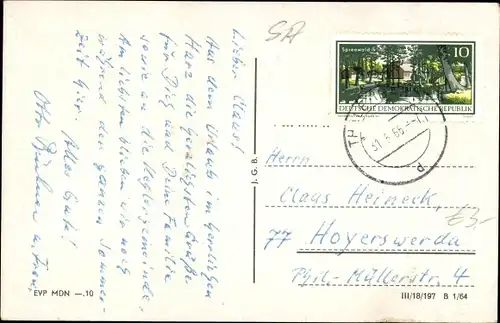 Lieber Claus!
Aus dem Urlaub im herrlichen
Harz die herzlichsten Grüße
für Dich und Deine Familie
sowie an die
Am liebsten blieben wir noch
während der ganzen Sommer-
zeit hier. Alles Gute!
Otto u. Frau
EVP MDN —.10
J. G. B.
Spreewald
10
DEUTSCHE DEMOKRATISCHE REPUBLIK
TH
31.5.66
Herrn
Claus Heineck,
77 Hoyerswerda
Phil.-Müllerstr. 4
III/18/197 B 1/64
€3.-